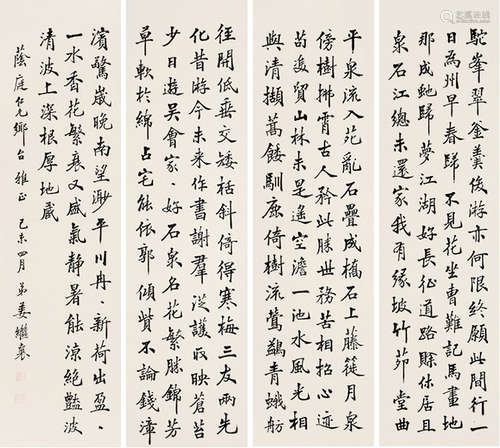 駝峯翠釜後游亦何限終願此間行一
日為州早春歸 不見花坐曹難記馬畫地
那成虵歸夢江湖好長征道路賒休居且
泉石江總未還家我有緣坡竹茆堂曲
平泉流入苑亂石疊成橋石上藤筵月泉
傍樹拂霄古人矜此勝世務苦相招心迹
苟復貿山林未是遙空澹一池水風光相
與清擷蒿餧馴鹿倚樹流鶯鷁青蛾舫
徑開低垂交矮枯斜倚得寒梅三友兩先
化昔游今未来作書謝羣從護收映蒼苔
少日遊吳會家〻好石泉名花繁勝錦芳
草軟於綿占宅能依郭傾貲不論錢漳
濱驚歲晚南望渺平川冉〻新荷出盈〻
一水香花繁襄又盛氣靜暑能涼絕豔波
清波上深根厚地藏
蔭庭仁兄鄉台雅正 己未四月 弟婁